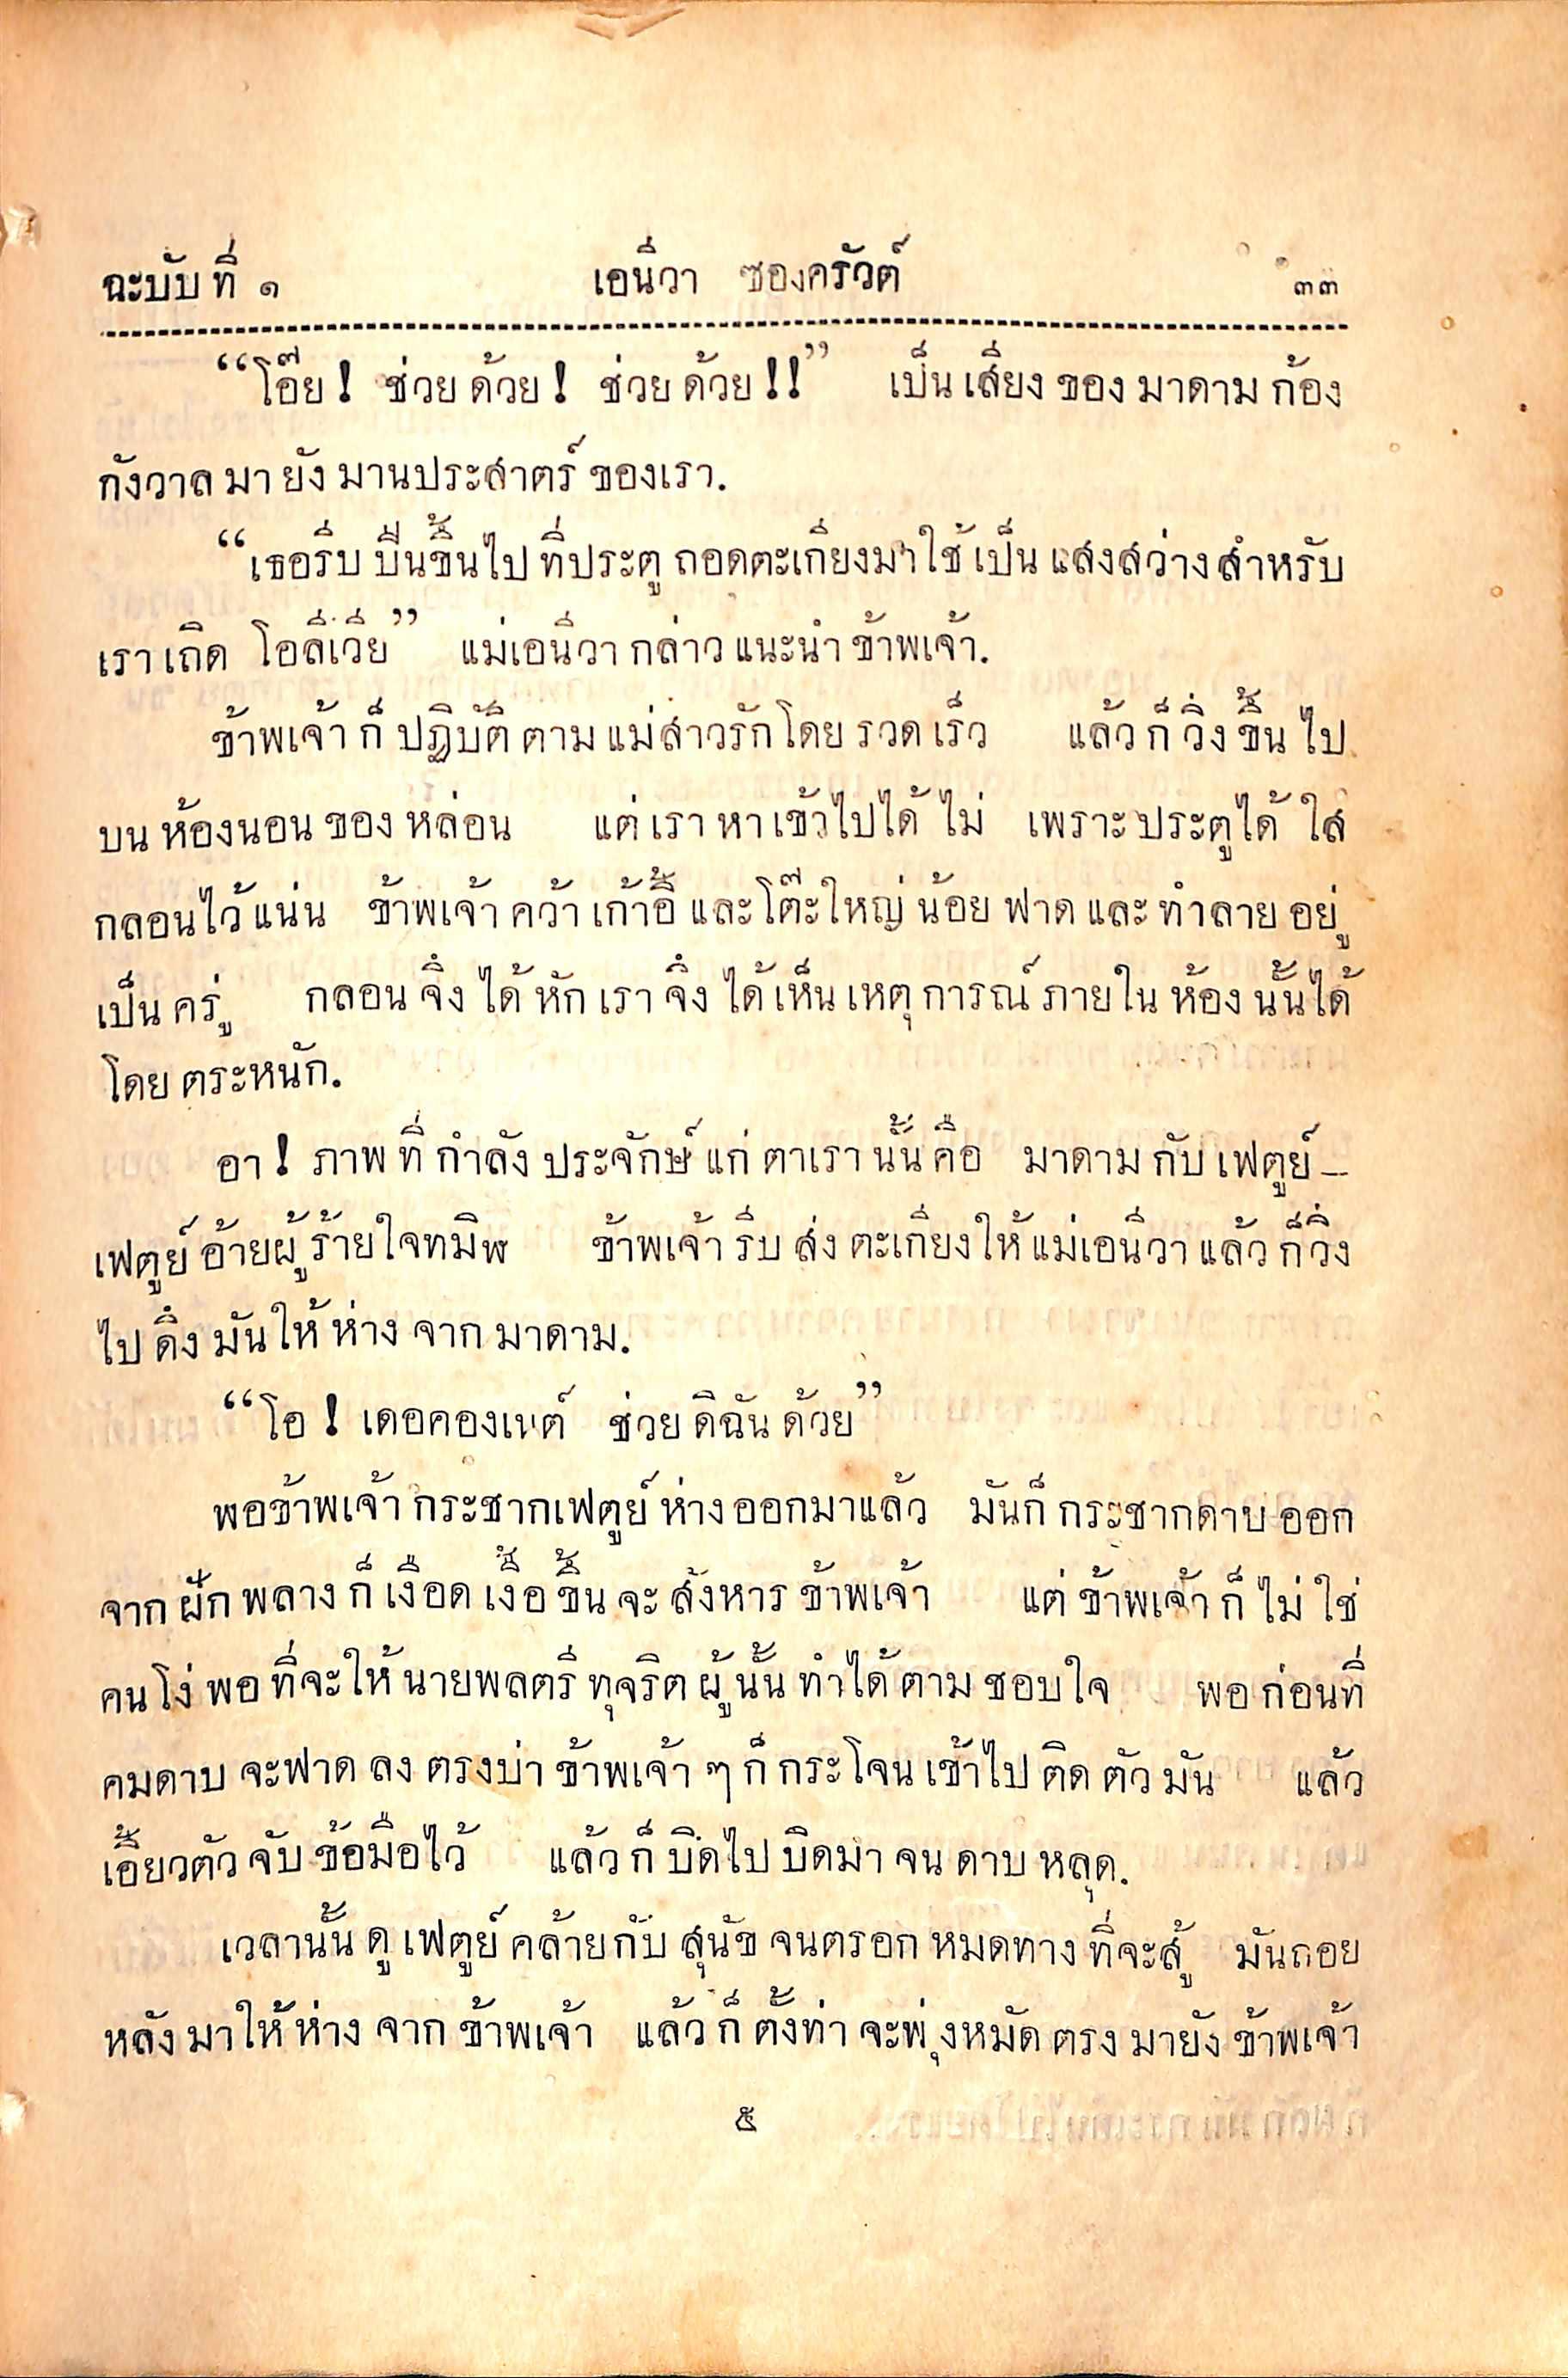 ฉะบับ ที่ ๑ เอนีวา ซองครัวต์ ๓๓
“โอ๊ย! ช่วย ด้วย! ช่วย ด้วย!!” เป็น เสียง ของ มาดาม ก้อง
กังวาล มา ยัง มานประสาตร์ ของเรา.
“เธอรีบ ปีนขึ้นไป ที่ประตู ถอดตะเกียงมาใช้ เป็น แสงสว่าง สำหรับ
เรา เถิด โอลีเวีย” แม่เอนีวา กล่าว แนะนำ ข้าพเจ้า.
ข้าพเจ้า ก็ ปฏิบัติ ตาม แม่สาวรัก โดย รวด เร็ว แล้ว ก็ วิ่ง ขึ้น ไป
บน ห้องนอน ของ หล่อน แต่ เรา หา เข้าไปได้ ไม่ เพราะ ประตูได้ ใส่
กลอนไว้ แน่น ข้าพเจ้า คว้า เก้าอี้ และ โต๊ะใหญ่ น้อย ฟาด และ ทำลาย อยู่
เป็น ครู่ กลอน จึง ได้ หัก เรา จึง ได้ เห็น เหตุ การณ์ ภายใน ห้อง นั้นได้
โดย ตระหนัก.
อา! ภาพ ที่ กำลัง ประจักษ์ แก่ ตาเรา นั้น คือ มาดาม กับ เฟตูย์—
เฟตูย์ อ้ายผู้ ร้ายใจทมิฬ ข้าพเจ้า รีบ ส่ง ตะเกียงให้ แม่เอนีวา แล้ว ก็วิ่ง
ไป ดึง มันให้ ห่าง จาก มาดาม.
“โอ! เดอคองเนต์ ช่วย ดิฉัน ด้วย”
พอข้าพเจ้า กระชากเฟตูย์ ห่าง ออกมาแล้ว มันก็ กระชากดาบ ออก
จาก ฝัก พลาง ก็ เงือด เงื้อ ขึ้น จะ สังหาร ข้าพเจ้า แต่ ข้าพเจ้า ก็ ไม่ ใช่
คน โง่ พอ ที่จะให้ นายพลตรี ทุจริต ผู้ นั้น ทำได้ ตาม ชอบใจ พอ ก่อนที่
คมดาบ จะฟาด ลง ตรงบ่า ข้าพเจ้า ๆ ก็ กระโจน เข้าไป ติด ตัว มัน แล้ว
เอี้ยวตัว จับ ข้อมือไว้ แล้ว ก็ บิดไป บิดมา จน ดาบ หลุด.
เวลานั้น ดู เฟตูย์ คล้ายกับ สุนัข จนตรอก หมดทาง ที่จะสู้ มันถอย
หลัง มาให้ ห่าง จาก ข้าพเจ้า แล้ว ก็ ตั้งท่า จะพุ่งหมัด ตรง มายัง ข้าพเจ้า
๕